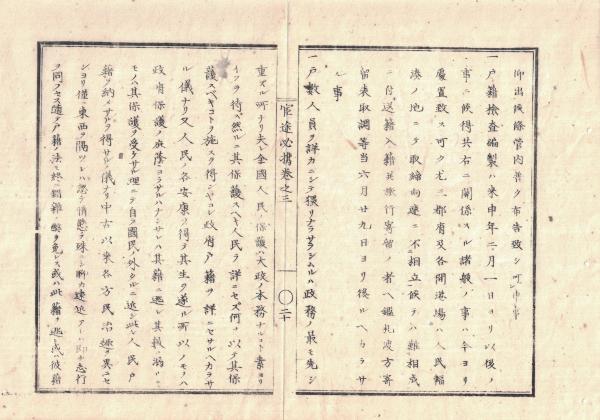 仰出候條管内普ク布告致シ可申事
一戸籍檢査編製ハ來申年二月一日ヨリ以後ノ
事ニ候得共右ニ關係スル諸般ノ事ハ今ヨリ
處置致ス可ク尤三都府及各開港場ハ人民輻
湊ノ地ニテ取締向速ニ不相立候テハ難相成
ニ付送籍入籍並旅行寄留ノ者ヘ鑑札渡方寄
留表取調等當六月廿九日ヨリ後ルヘカラサ
ル事
一戸數人員ヲ詳カニシテ猥リナラサラシムルハ政務ノ最モ先シ
官途必携巻之三
〇二十
重スル所ナリ夫レ全國人民ノ保護ハ大政ノ本務ナルコト素ヨリ
イフヲ待タス然ルニ其保護スヘキ人民ヲ詳ニセス何ヲ以テ其保
護スヘキコトヲ施スヲ得ンヤ是レ政府戸籍ヲ詳ニセサルヘカラサ
ル儀ナリ又人民ノ各安康ヲ得テ其生ヲ遂ル所以ノモノハ
政府保護ノ庇蔭ニヨラサルハナシサレハ其籍ヲ逃レ其數ニ漏ル
モノハ其保護ヲ受ケサル理ニテ自ラ國民ノ外タルニ近シ此レ人民戸
籍ヲ納メサルヲ得サルノ儀ナリ中古以來各方民治趣ヲ異ニセ
シヨリ僅ニ東西ヲ隔ツレハ忽チ情態ヲ殊ニシ聊カ遠近アレハ即チ志行
ヲ同フセス隨テ戸籍ノ法モ終ニ錯雜ノ弊ヲ免レス或ハ此籍ヲ逃レテ彼籍